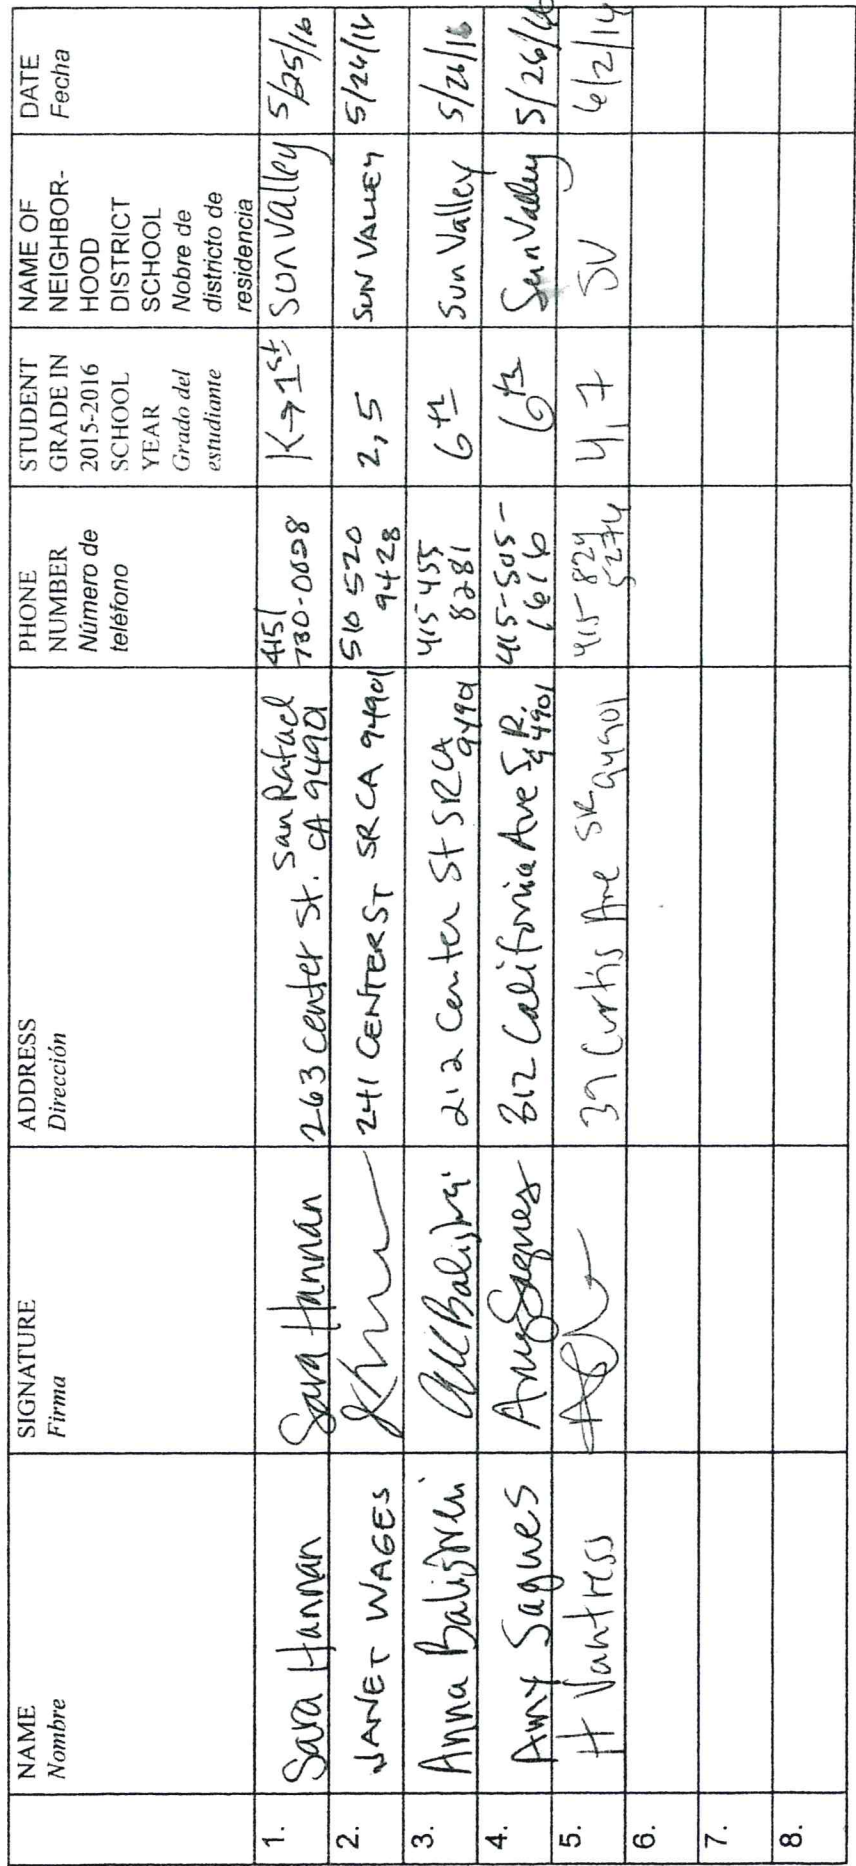 NAME
Nombre
SIGNATURE
Firma
ADDRESS
Dirección
PHONE
NUMBER
Número de
teléfono
STUDENT
GRADE IN
2015-2016
SCHOOL
YEAR
Grado del
estudiante
NAME OF
NEIGHBOR-
HOOD
DISTRICT
SCHOOL
Nobre de
districto de
residencia
DATE
Fecha
1.
Sara Hannan
Sara Hannan
263 center St. San Rafael
CA 94901
415/
730-0028
K→1st
Sun Valley
5/25/16
2.
JANET WAGES
241 CENTER ST SR CA 94901
510 520
9428
2,5
SUN VALLEY
5/26/16
3.
Anna
212 Center St SR CA
94901
415 455
8281
6th
Sun Valley
5/26/16
4.
Amy Sagues
Amy Sagues
312 California Ave S.R.
94901
415-505-
1616
6th
Sun Valley
5/26/16
5.
H Vantress
39 Curtis Ave SR 94901
415 824
5274
4,7
SV
6/2/16
6.
7.
8.